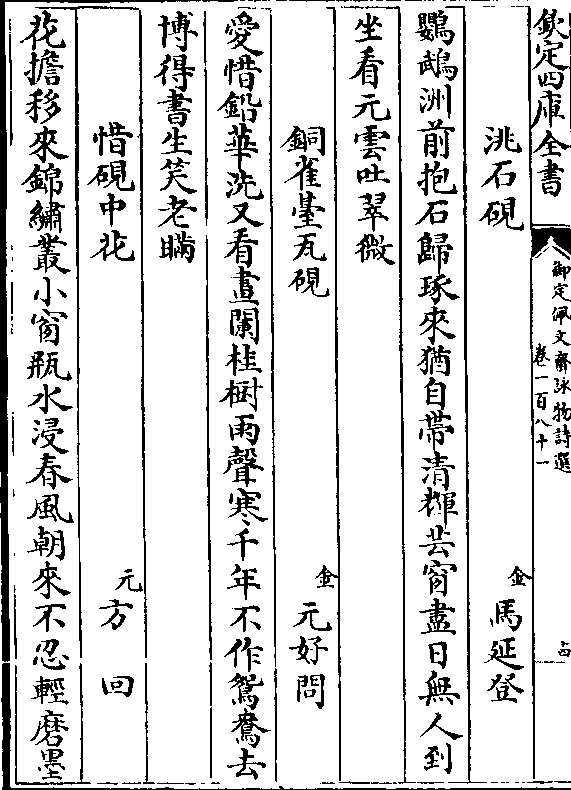 欽定四庫全書
御定佩文齋詠物詩選
卷一百八十一
洮石硯
金
馬延登
鸚鵡洲前抱石歸琢來猶自帶清輝芸窗盡日無人到
坐看元雲吐翠微
銅雀臺瓦硯
金
元好問
愛惜鉛華洗又看畫闌桂樹雨聲寒千年不作鴛鴦去
博得書生笑老瞞
惜硯中花
元
方回
花擔移來錦繡叢小窗瓶水浸春風朝來不忍輕磨墨